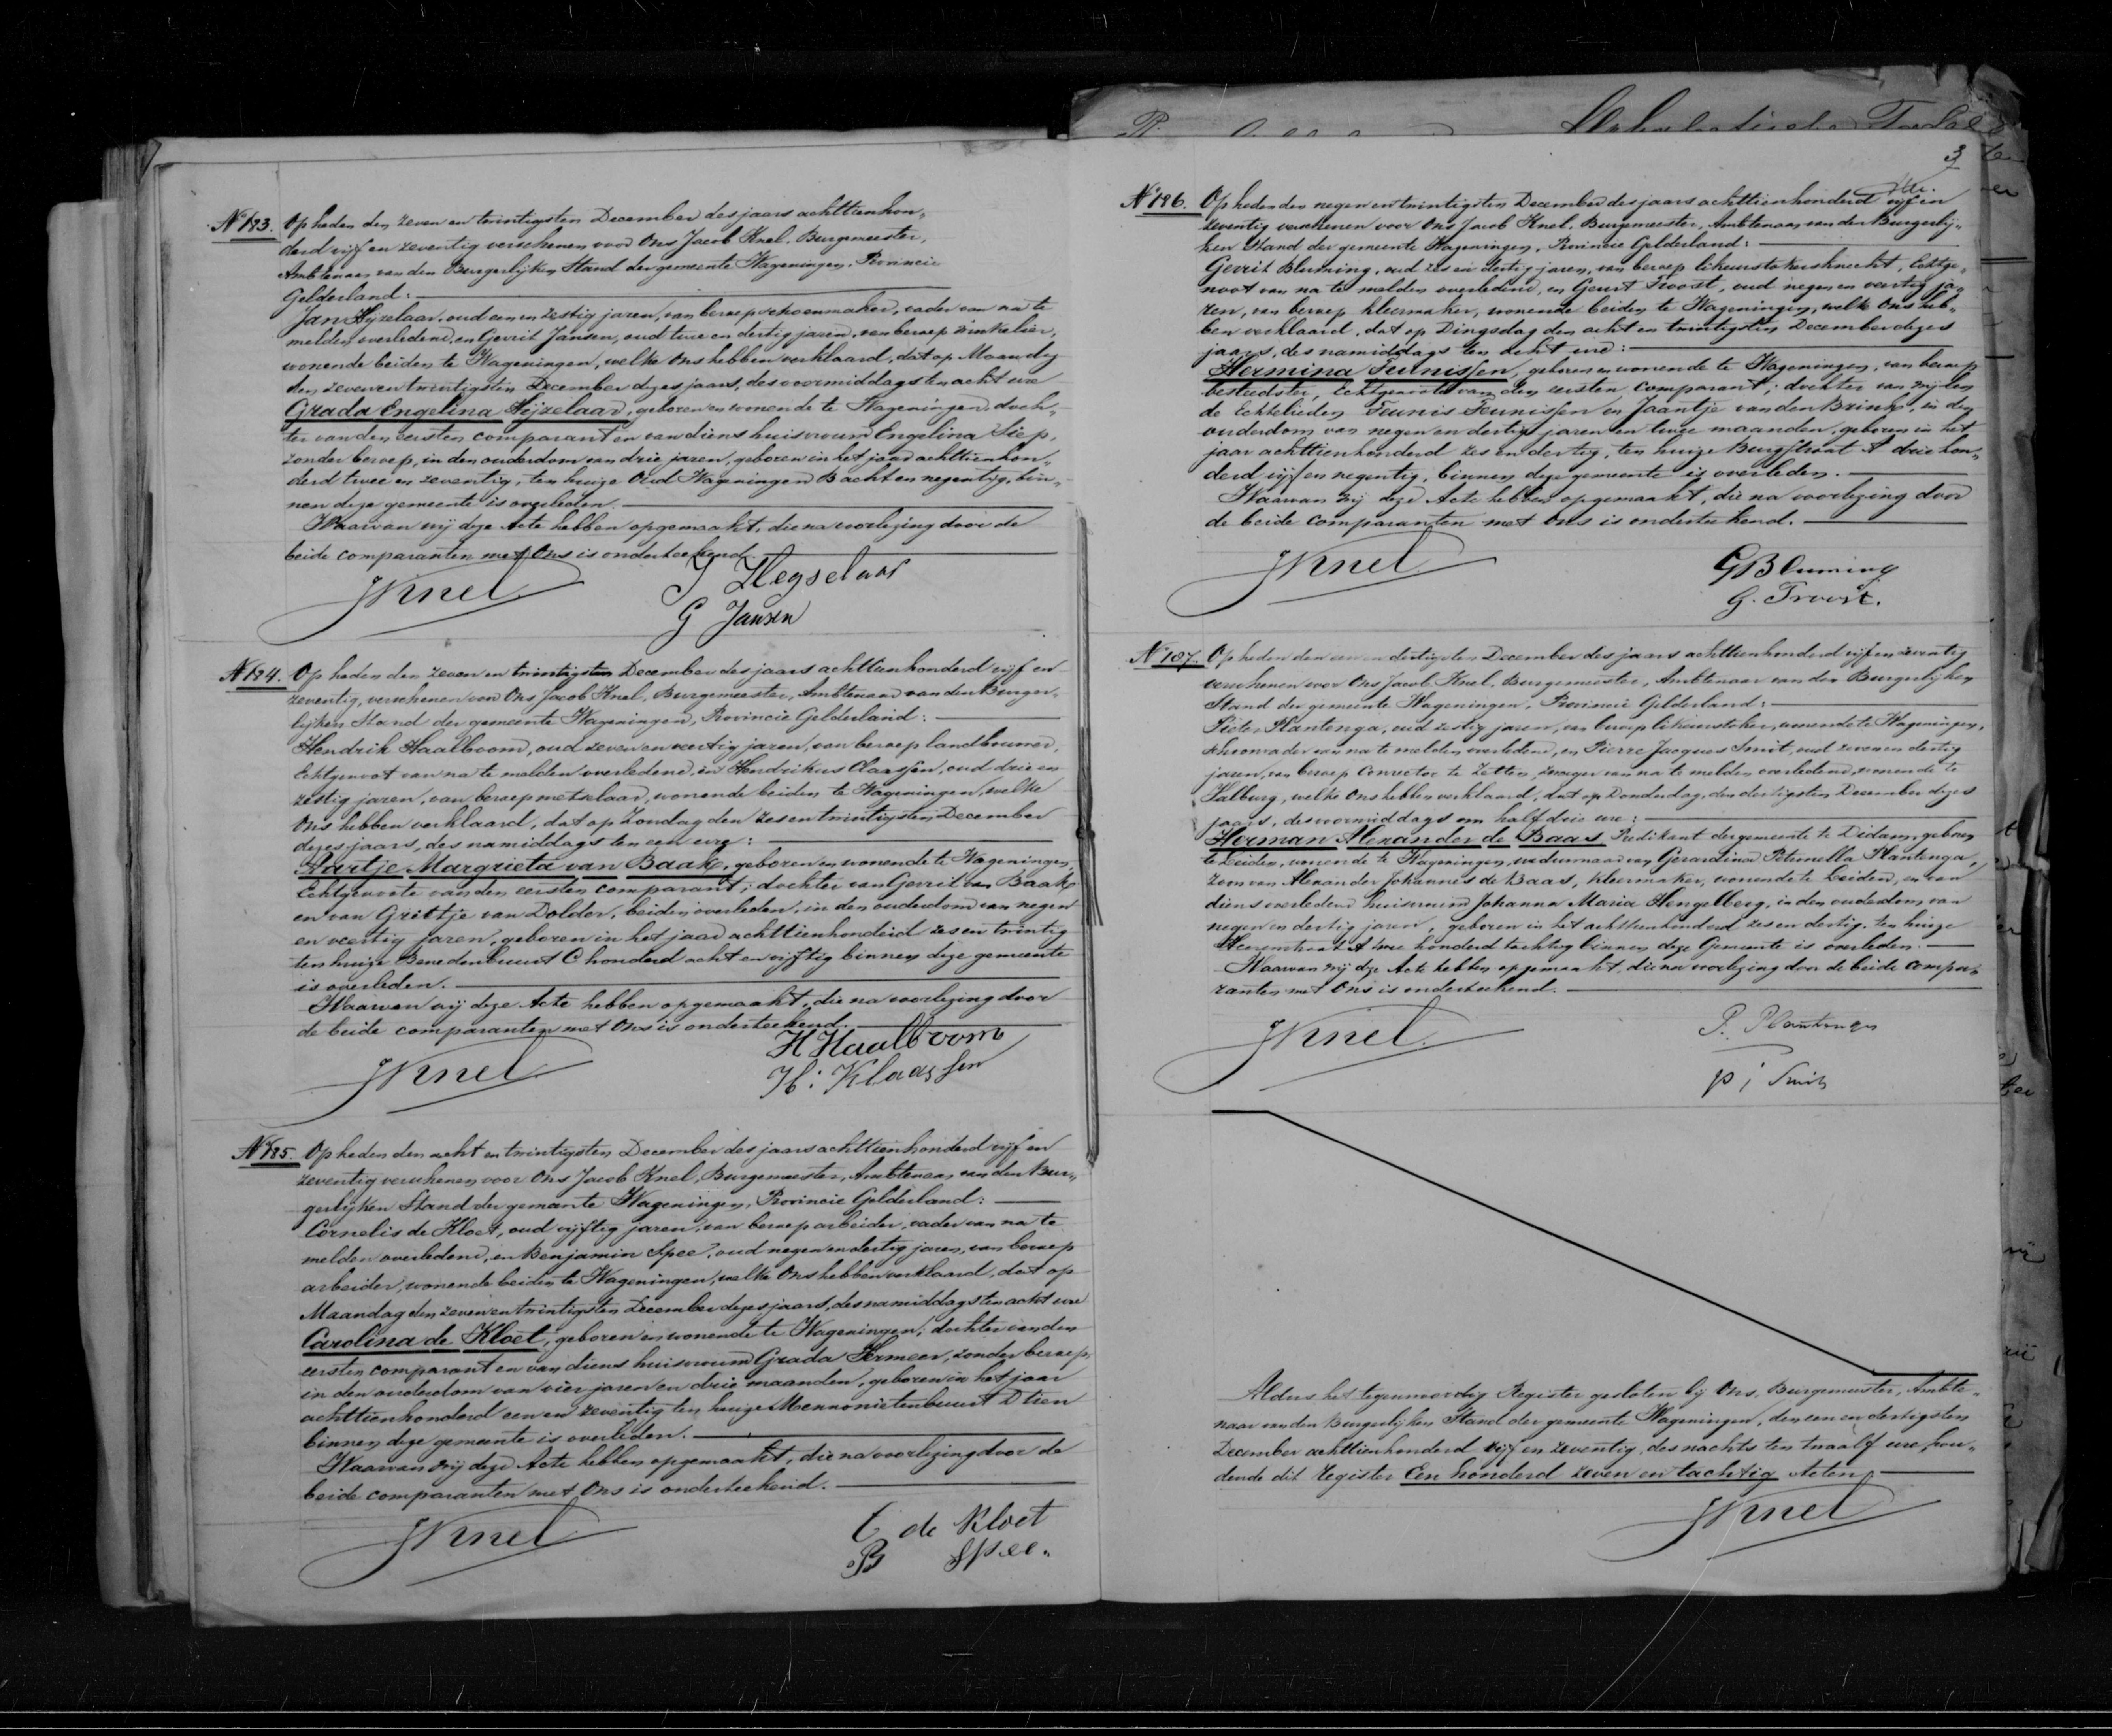 No 183. Op heden den zeven en twintigsten December des jaars achttienhon„
derd vijf en zeventig verschenen voor Ons Jacob Knel, Burgemeester,
Ambtenaar van den Burgerlijken Stand der gemeente Wageningen, Provincie
Gelderland:
Jan Hijzelaar, oud een en zestig jaren, van beroep schoenmaker, vader van na te
melden overledene, en Gerrit Jansen, oud twee en dertig jaren, van beroep winkelier,
wonende beiden te Wageningen, welke Ons hebben verklaard, dat op Maandag
den zeven en twintigsten December dezes jaars, des voormiddags ten acht ure
Grada Engelina Hijzelaar, geboren en wonende te Wageningen, doch„
ter van den eersten comparant en van diens huisvrouw Engelina Siep,
zonder beroep, in den ouderdom van drie jaren, geboren in het jaar achttienhon„
derd twee en zeventig, ten huize Oud Wageningen B acht en negentig, bin„
nen deze gemeente is overleden.
Waarvan wij deze Acte hebben opgemaakt, die na voorlezing door de
beide comparanten met Ons is onderteekend.
JKnel J Hegselaar
G Jansen
No 184. Op heden den zeven en twintigsten December des jaars achttienhonderd vijf en
zeventig, verschenen voor Ons Jacob Knel, Burgemeester, Ambtenaar van den Burger„
lijken Stand der gemeente Wageningen, Provincie Gelderland:
Hendrik Haalboom, oud zeven en veertig jaren, van beroep landbouwer,
Echtgenoot van na te melden overledene, en Hendrikus Claassen, oud drie en
zestig jaren, van beroep metselaar, wonende beiden te Wageningen, welke
Ons hebben verklaard, dat op Zondag den zes en twintigsten December
dezes jaars, des namiddags ten een ure:
Aartje Margrieta van Baak, geboren en wonende te Wageningen,
Echtgenoote van den eersten comparant; dochter van Gerrit van Baak
en van Grittje van Dolder, beiden overleden, in den ouderdom van negen
en veertig jaren, geboren in het jaar achttienhonderd zes en twintig
ten huize Benedenbuurt C honderd acht en vijftig binnen deze gemeente
is overleden.
Waarvan wij deze Acte hebben opgemaakt, die na voorlezing door
de beide comparanten met Ons is onderteekend.
JKnel H Haalboom
H: Klaassen
No 185. Op heden den acht en twintigsten December des jaars achttienhonderd vijf en
zeventig verschenen voor Ons Jacob Knel, Burgemeester, Ambtenaar van den Bur„
gerlijken Stand der gemeente Wageningen, Provincie Gelderland:
Cornelis de Kloet, oud vijftig jaren, van beroep arbeider, vader van na te
melden overledene, en Benjamin Spee, oud negen en dertig jaren, van beroep
arbeider, wonende beiden te Wageningen, welke Ons hebben verklaard, dat op
Maandag den zeven en twintigsten December dezes jaars, des namiddags ten acht ure
Carolina de Kloet, geboren en wonende te Wageningen; dochter van den
eersten comparant en van diens huisvrouw Grada Hermeer, zonder beroep,
in den ouderdom van vier jaren en drie maanden, geboren in het jaar
achttienhonderd een en zeventig ten huize Mennonietenbuurt D tien
binnen deze gemeente is overleden.
Waarvan wij deze Acte hebben opgemaakt, die na voorlezing door de
beide comparanten met Ons is onderteekend.
JKnel C de Kloet
B Spee.
3
No 186. Op heden den negen en twintigsten December des jaars achttienhonderd vijf en
zeventig verschenen voor Ons Jacob Knel, Burgemeester, Ambtenaar van den Burgerlij„
ken Stand der gemeente Wageningen, Provincie Gelderland:
Gerrit Bluming, oud zes en dertig jaren, van beroep likeurstokersknecht, Echtge„
noot van na te melden overledene, en Geurt Troost, oud negen en veertig ja„
ren, van beroep kleermaker, wonende beiden te Wageningen, welke Ons heb„
ben verklaard, dat op Dingsdag den acht en twintigsten December dezes
jaars, des namiddags ten acht ure:
Hermina Teunissen, geboren en wonende te Wageningen, van beroep
besteedster, Echtgenoote van den eersten comparant; dochter van wijlen
de Echtelieden Teunis Teunissen en Jaantje van den Brink, in den
ouderdom van negen en dertig jaren en twee maanden, geboren in het
jaar achttienhonderd zes en dertig, ten huize Burgstraat A drie hon„
derd vijf en negentig, binnen deze gemeente is overleden.
Waarvan wij deze Acte hebben opgemaakt, die na voorlezing door
de beide comparanten met Ons is onderteekend.
JKnel GBluming
G. Troost.
No 187. Op heden den een en dertigsten December des jaars achttienhonderd vijf en zeventig
verschenen voor Ons Jacob Knel, Burgemeester, Ambtenaar van den Burgerlijken
Stand der gemeente Wageningen, Provincie Gelderland:
Pieter Plantenga, oud zestig jaren, van beroep likeurstoker, wonende te Wageningen,
schoonvader van na te melden overledene, en Pierre Jacques Smit, oud zeven en dertig
jaren, van beroep Conrector te Zetten, zwager van na te melden overledene, wonende te
Valburg, welke Ons hebben verklaard, dat op Donderdag, den dertigsten December dezes
jaars, des voormiddags om half drie ure:
Herman Alexander de Baas, Predikant der gemeente te Didam, geboren
te Leiden, wonende te Wageningen, weduwnaar van Gerardina Petronella Plantenga,
zoon van Alexander Johannes de Baas, kleermaker, wonende te Leiden, en van
diens overledene huisvrouw Johanna Maria Hengelberg, in den ouderdom van
negen en dertig jaren, geboren in het achttienhonderd zes en dertig, ten huize
Heerenstraat A twee honderd tachtig binnen deze Gemeente is overleden.
Waarvan wij deze Acte hebben opgemaakt, die na voorlezing door de beide compa„
ranten met Ons is onderteekend.
JKnel P. Plantenga
P j Smit
Aldus het tegenwoordig Register gesloten bij Ons, Burgemeester, Ambte„
naar van den Burgerlijken Stand der gemeente Wageningen, den een en dertigsten
December achttienhonderd vijf en zeventig, des nachts ten twaalf ure, hou„
dende dit register Een honderd zeven en tachtig Acten.
JKnel